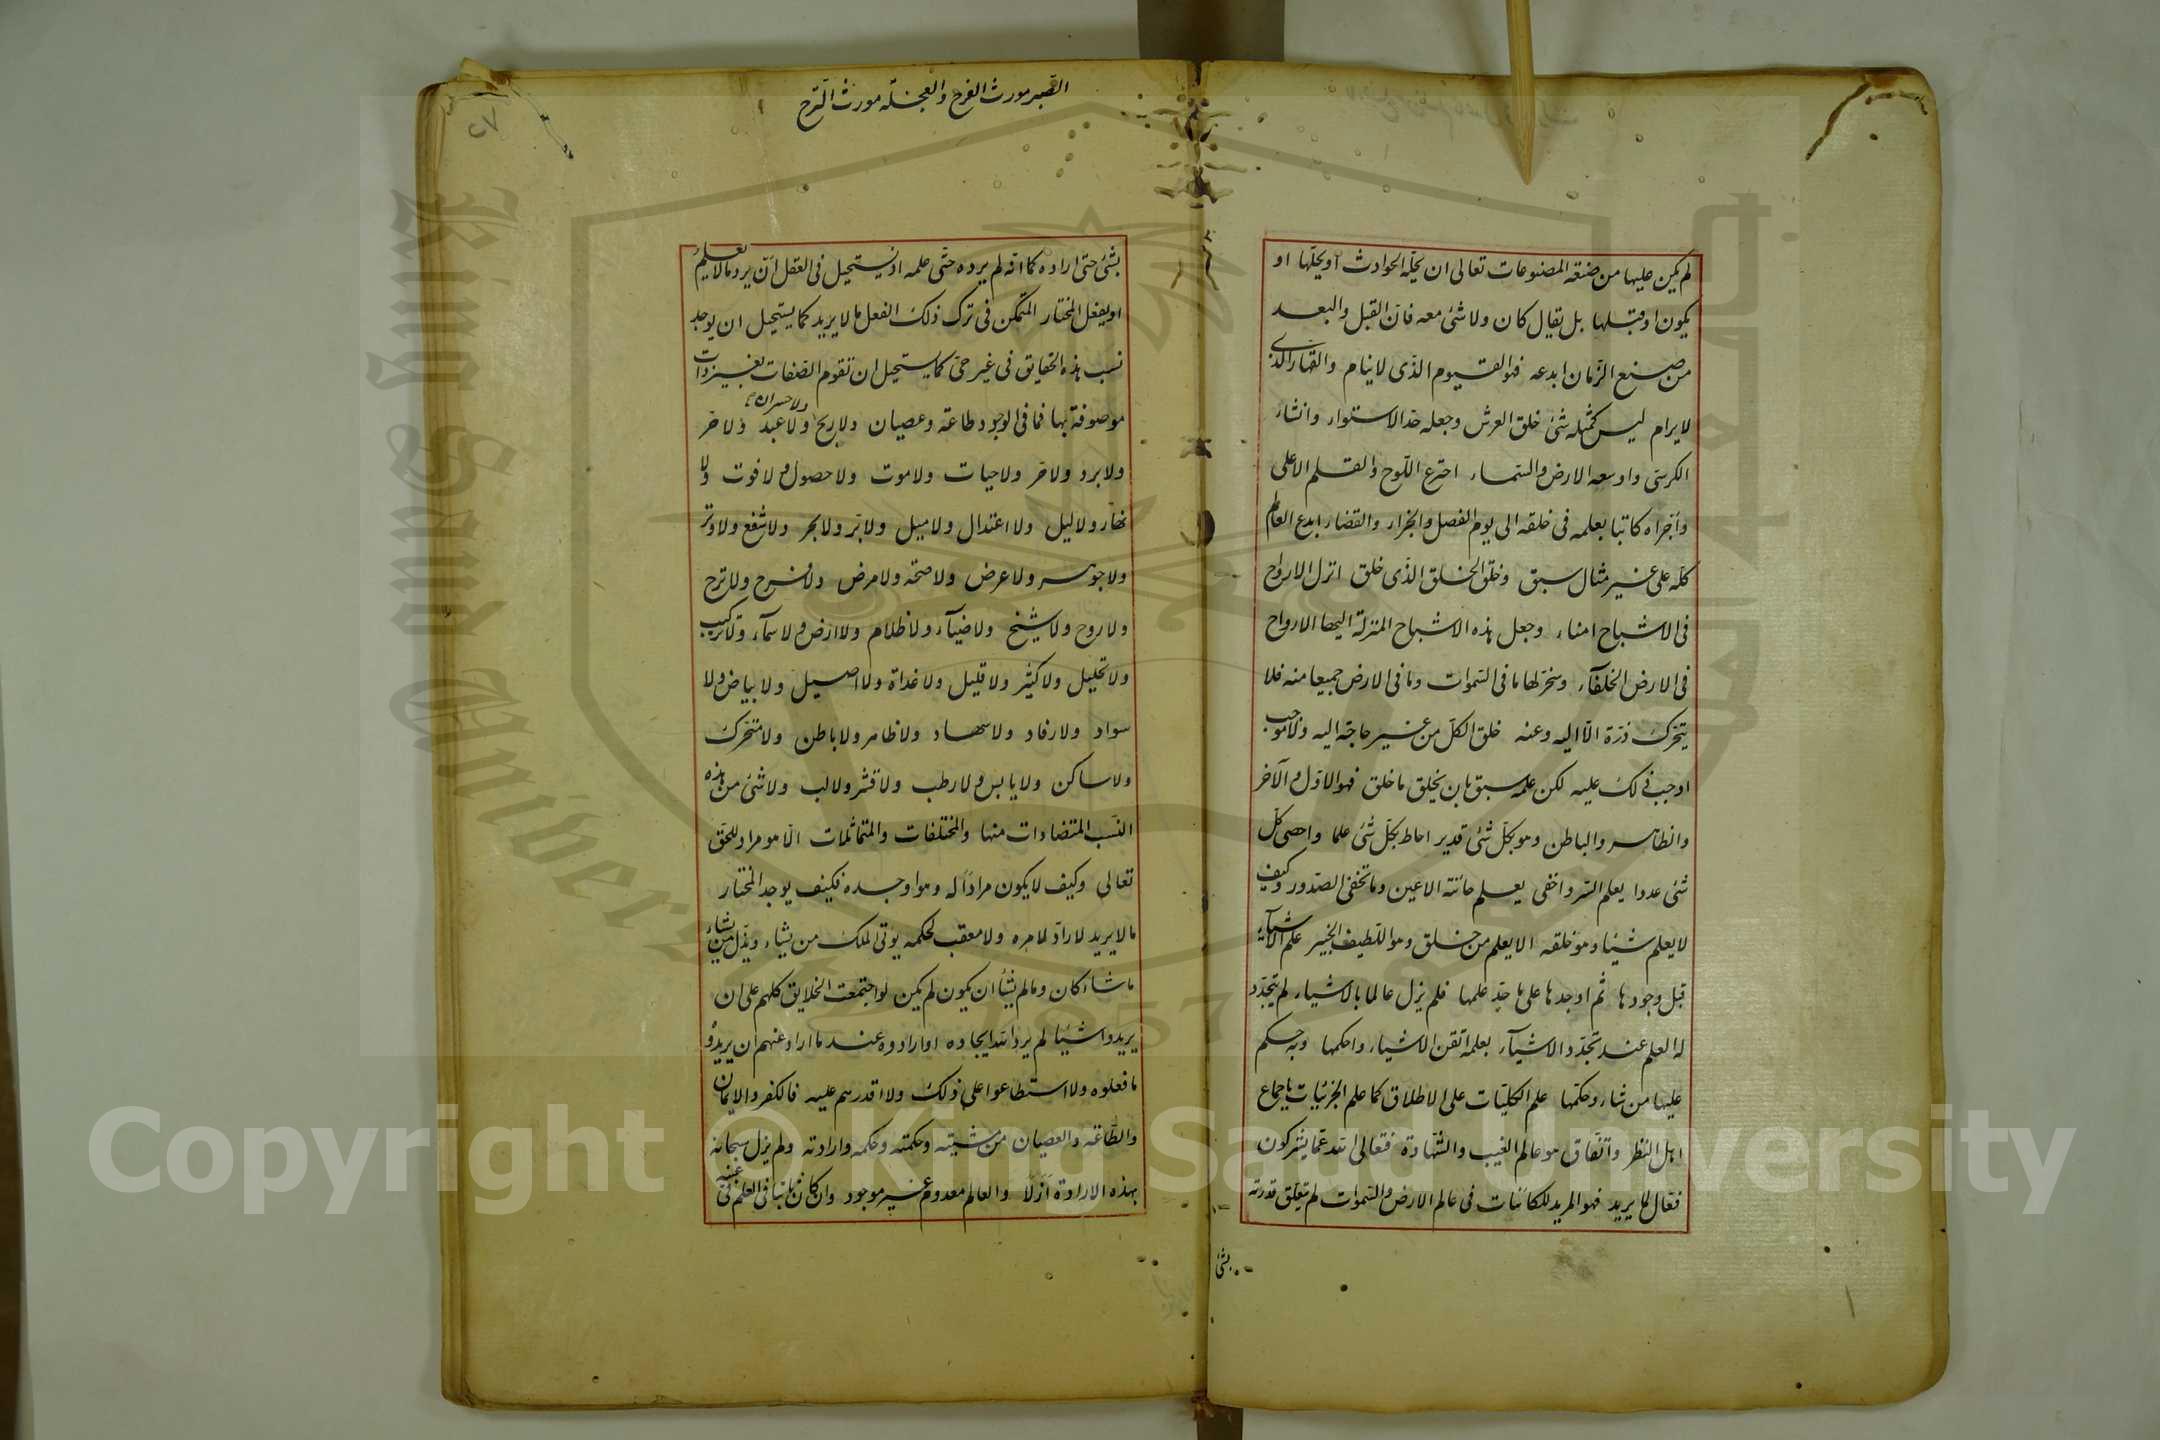 لم يكن عليها من صنعة المصنوعات تعالى ان تحله الحوادث او يحلها او
يكون او قبلها بل يقال كان ولا شئ معه فان القبل والبعد
من صنع الزمان ابدعه فهو القيوم الذى لا ينام والقهار الذى
لا يرام ليس كمثله شئ خلق العرش وجعله حد الاستواء وانشاء
الكرسى واوسعه الارض والسماء اخترع اللوح والقلم الاعلى
واجراه كاتبا بعلمه فى خلقه الى يوم الفصل والجزاء والقضاء ابدع العالم
كله على غير مثال سبق وخلق الخلق الذى خلق انزل الارواح
فى الاشباح امناء وجعل هذه الاشباح المنزلة اليها الارواح
فى الارض الخلفاء وسخر لها ما فى السموات وما فى الارض جميعا منه فلا
يتحرك ذرة الا اليه وعنه خلق الكل من غير حاجة اليه ولا موجب
اوجب ذلك عليه لكن علمه سبق بان يخلق ما خلق فهو الاول والآخر
والظاهر والباطن وهو بكل شئ قدير احاط بكل شئ علما واحصى كل
شئ عددا يعلم السر واخفى يعلم خائنة الاعين وما تخفى الصدور وكيف
لا يعلم شيئا وهو خلقه الا يعلم من خلق وهو اللطيف الخبير علم الاشياء
قبل وجودها ثم اوجدها على ما حد علمها فلم يزل عالما بالاشياء لم يتجدد
له العلم عند تجدد الاشياء بعلمه اتقن الاشياء واحكمها وبه حكم
عليها من شاء وحكمها علم الكليات على الاطلاق كما علم الجزئيات باجماع
اهل النظر واتفاق هو عالم الغيب والشهادة فتعالى الله عما يشركون
فعال لما يريد فهو المريد للكائنات فى عالم الارض والسموات لم تتعلق قدرته
بشئ
الصبر مورث الفرح والعجلة مورث الترح
٢٧
بشئ حتى اراده كما انه لم يرده حتى علمه اذ يستحيل فى العقل ان يريد ما لا يعلم
او يفعل المختار المتمكن فى ترك ذلك الفعل ما لا يريد كما يستحيل ان يوجد
نسب هذه الحقايق فى غير حى كما يستحيل ان تقوم الصفات بغير ذات
موصوفة بها فما فى الوجود طاعة وعصيان ولا ربح ولا خسران ولا عبد ولا حر
ولا برد ولا حر ولا حيات ولا موت ولا حصول ولا فوت ولا
نهار ولا ليل ولا اعتدال ولا ميل ولا بر ولا بحر ولا شفع ولا وتر
ولا جوهر ولا عرض ولا صحة ولا مرض ولا فرح ولا ترح
ولا روح ولا شبح ولا ضياء ولا ظلام ولا ارض ولا سماء ولا تركيب
ولا تحليل ولا كثير ولا قليل ولا غداة ولا اصيل ولا بياض ولا
سواد ولا رقاد ولا سهاد ولا ظاهر ولا باطن ولا متحرك
ولا ساكن ولا يابس ولا رطب ولا قشر ولا لب ولا شئ من هذه
النسب المتضادات منها والمختلفات والمتماثلات الا هو مراد للحق
تعالى وكيف لا يكون مرادا له وهو اوجده فكيف يوجد المختار
ما لا يريد لا راد لامره ولا معقب لحكمه يوتى الملك من يشاء ويذل من يشاء
ما شاء كان وما لم يشأ ان يكون لم يكن لو اجتمعت الخلايق كلهم على ان
يريدوا شيئا لم يرد الله ايجاده او ارادوه عند ما اراد عنهم ان يريدوا
ما فعلوه ولا استطاعوا على ذلك ولا اقدرهم عليه فالكفر والايمان
والطاعة والعصيان من مشيته وحكمته وحكمه وارادته ولم يزل سبحانه
بهذه الارادة ازلا والعالم معدوم غير موجود وان كان ثابتا فى العلم فى عينه
King Saud University
1957
Copyright © King Saud University